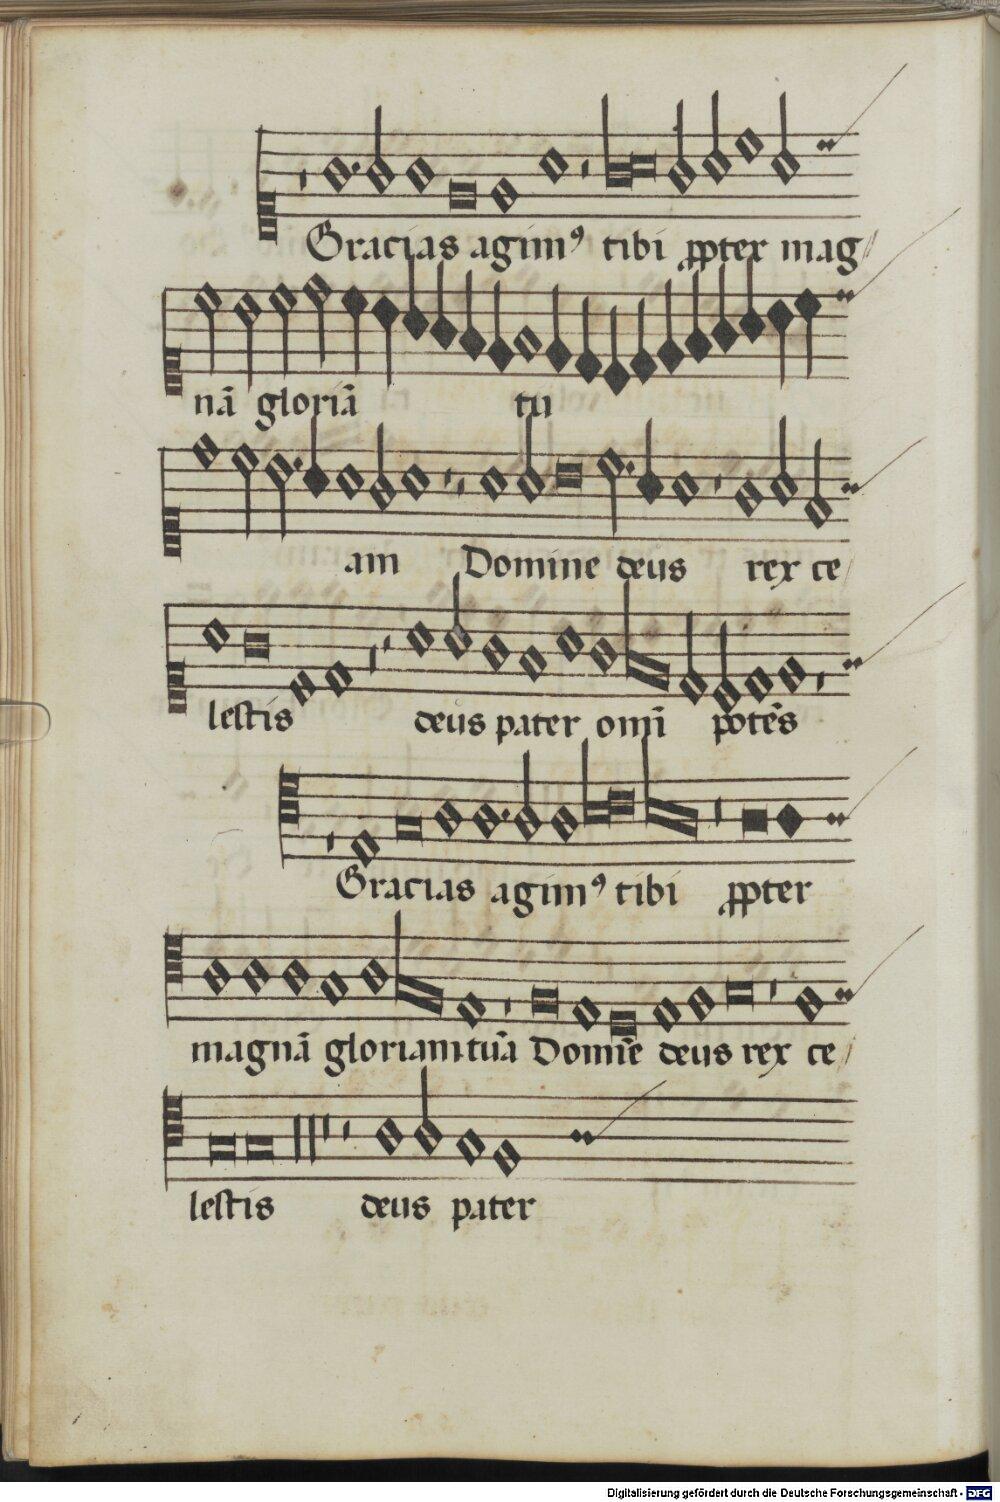 Gracias agimꝰ tibi ꝓpter mag
nā gloriā tu
am Domine deus rex ce
lestis deus pater omī potēs
Gracias agimꝰ tibi ꝓpter
magnā gloriam tuā Domīe deus rex ce
lestis deus pater
Digitalisierung gefördert durch die Deutsche Forschungsgemeinschaft - DFG